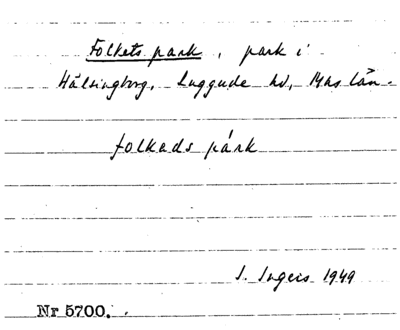 Folkets park, park i
Hälsingborg, Luggude hd, Mhs län.
folkads párk
I. Ingers 1949
Nr 5700.